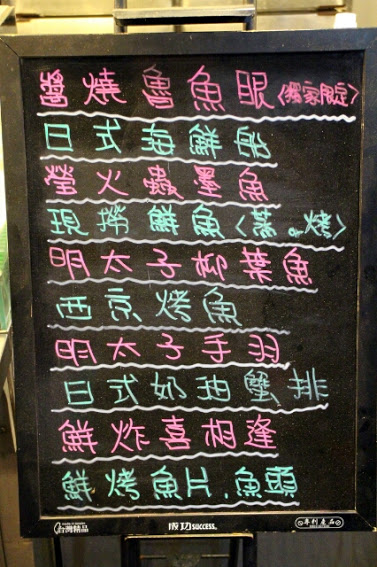 醬燒魯魚眼〈獨家限定〉
日式海鮮船
螢火蟲墨魚
現撈鮮魚〈蒸or烤〉
明太子柳葉魚
西京烤魚
明太子手羽
日式奶油蟹排
鮮炸喜相逢
鮮烤魚片.魚頭
台灣精品 成功 SUCCESS. 專利產品